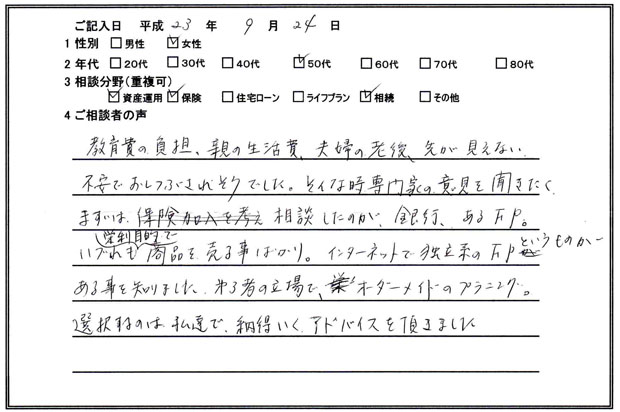 ご記入日 平成 23 年 9 月 24 日
1 性別 □男性 ☑女性
2 年代 □20代 □30代 □40代 ☑50代 □60代 □70代 □80代
3 相談分野(重複可)
☑資産運用 ☑保険 □住宅ローン □ライフプラン ☑相続 □その他
4 ご相談者の声
教育費の負担、親の生活費、夫婦の老後、先が見えない
不安でおしつぶされそうでした。そんな時専門家の意見を聞きたく
まずは、保険加入を考え 相談したのが、銀行、あるFP。
営利目的で
いづれも商品を売る事ばかり。インターネットで独立系のFPというものが
ある事を知りました。第3者の立場で、オーダーメイドのプラニング。
選択するのは私達で、納得いくアドバイスを頂きました